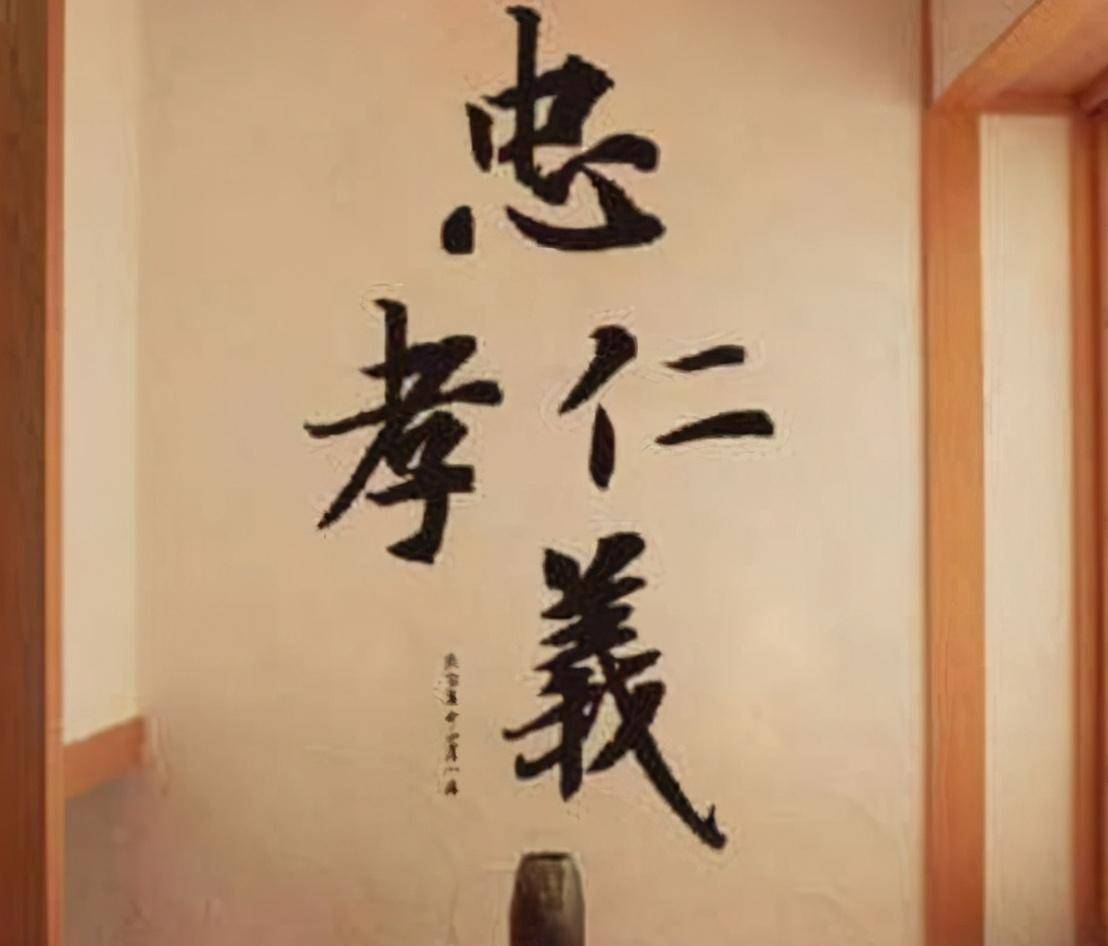 忠
孝仁
義